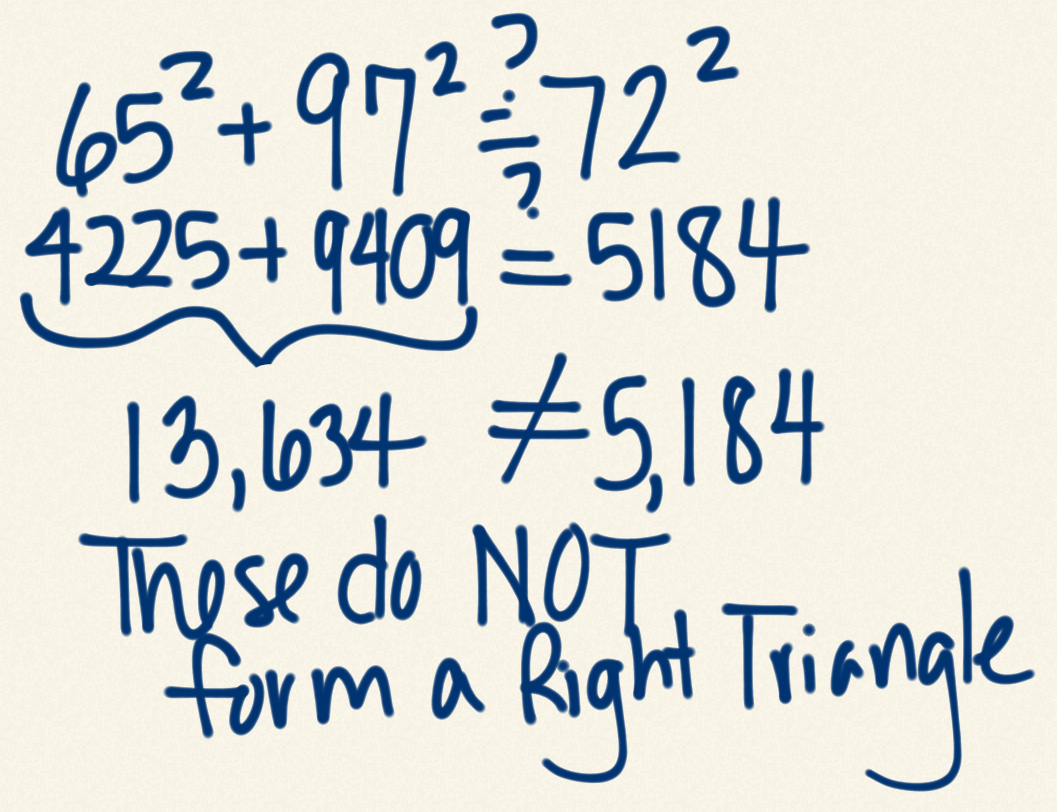 65² + 97² ≟ 72²
4225 + 9409 ≟ 5184
13,634 ≠ 5,184
These do NOT
form a Right Triangle